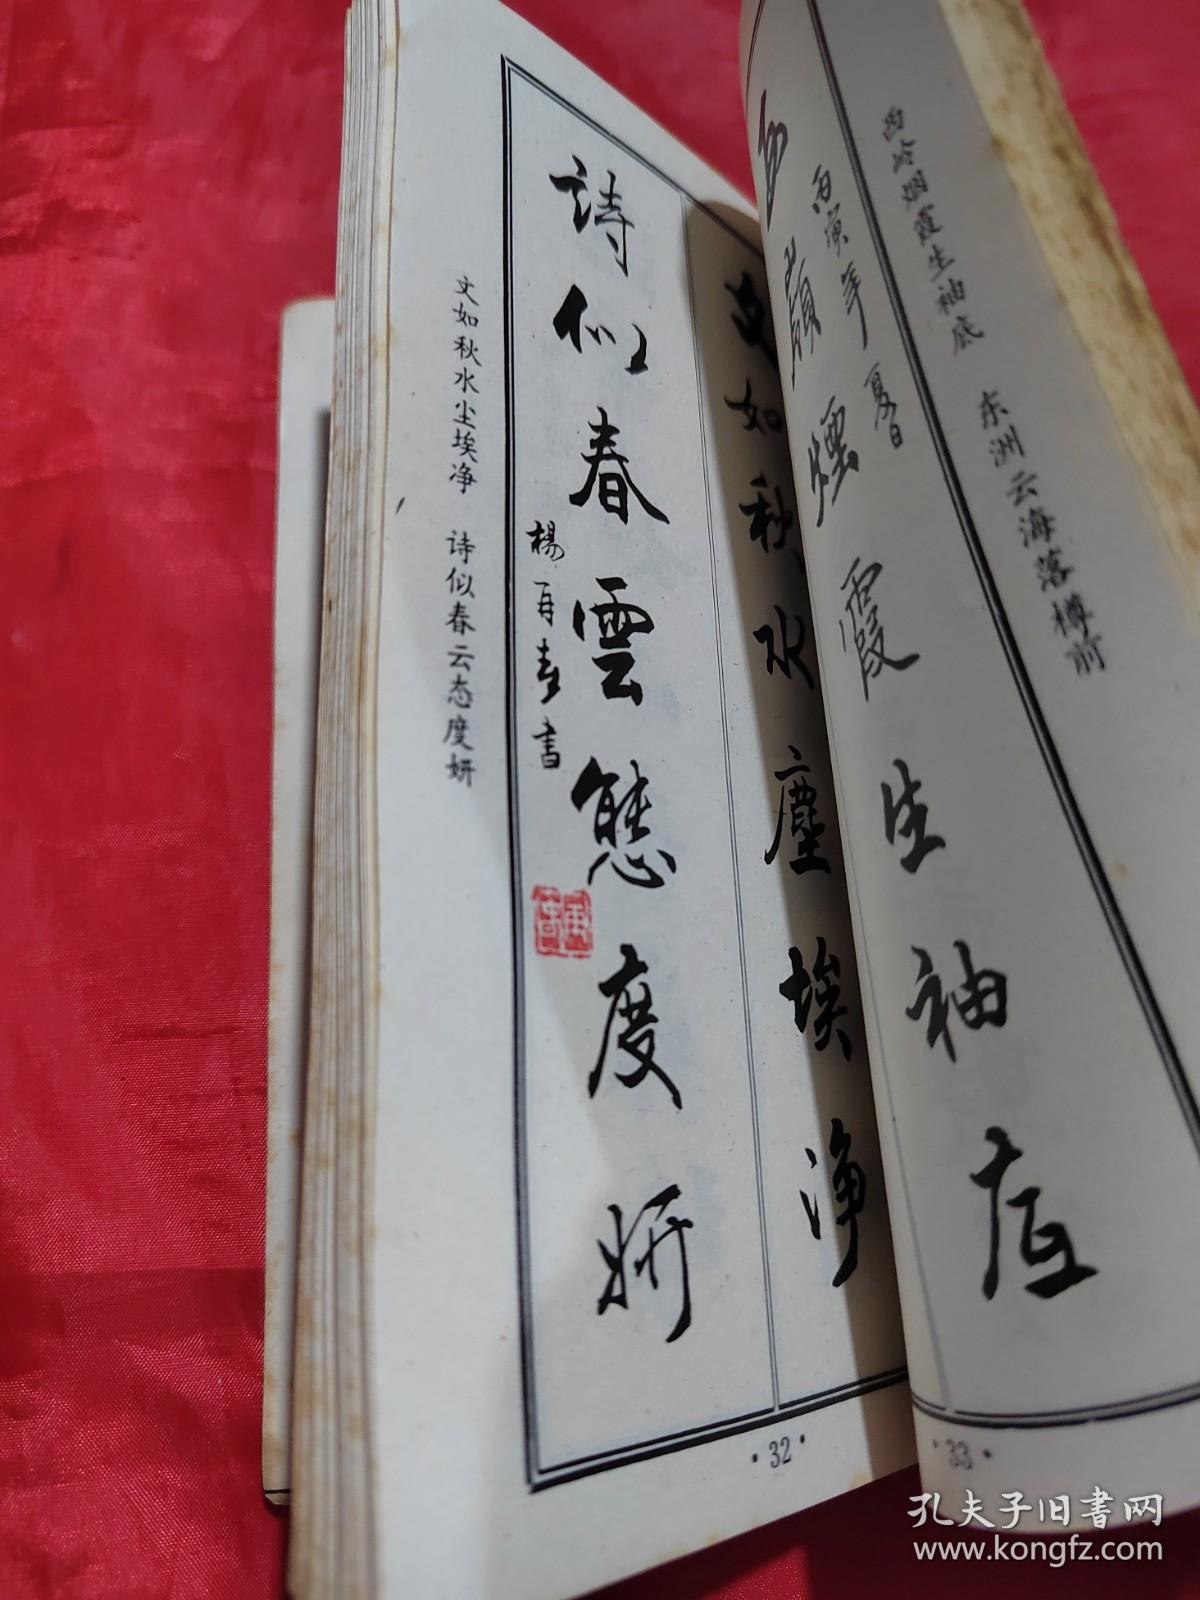 西岭烟霞生袖底　东洲云海落樽前
丙寅年夏日
煙霞生袖底
·33·
文如秋水塵埃净
詩似春雲態度妍
楊再春書
文如秋水尘埃净　诗似春云态度妍
·32·
孔夫子旧书网
www.kongfz.com